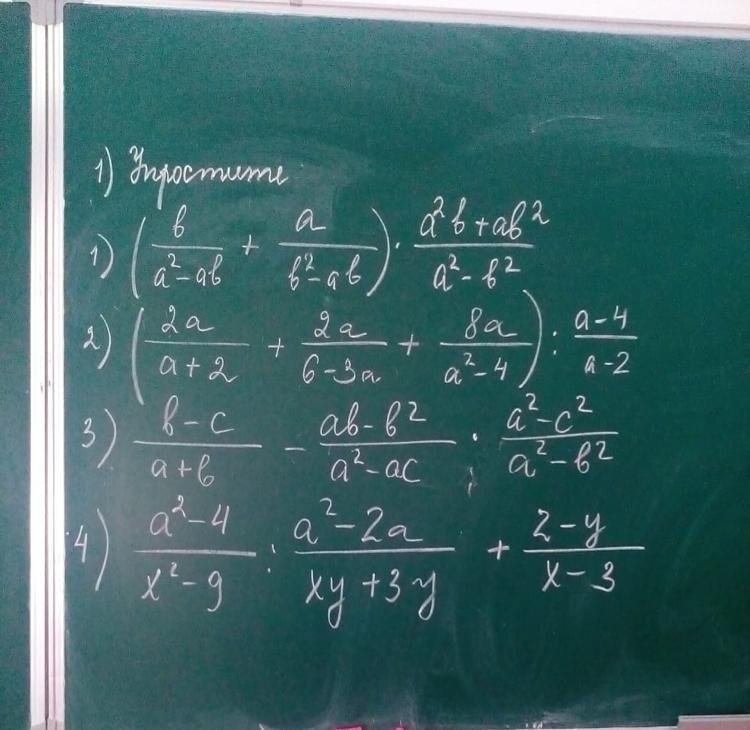 1) Упростите
1) (b/(a²-ab) + a/(b²-ab)) · (a²b+ab²)/(a²-b²)
2) (2a/(a+2) + 2a/(6-3a) + 8a/(a²-4)) : (a-4)/(a-2)
3) (b-c)/(a+b) - (ab-b²)/(a²-ac) · (a²-c²)/(a²-b²)
4) (a²-4)/(x²-9) : (a²-2a)/(xy+3y) + (2-y)/(x-3)